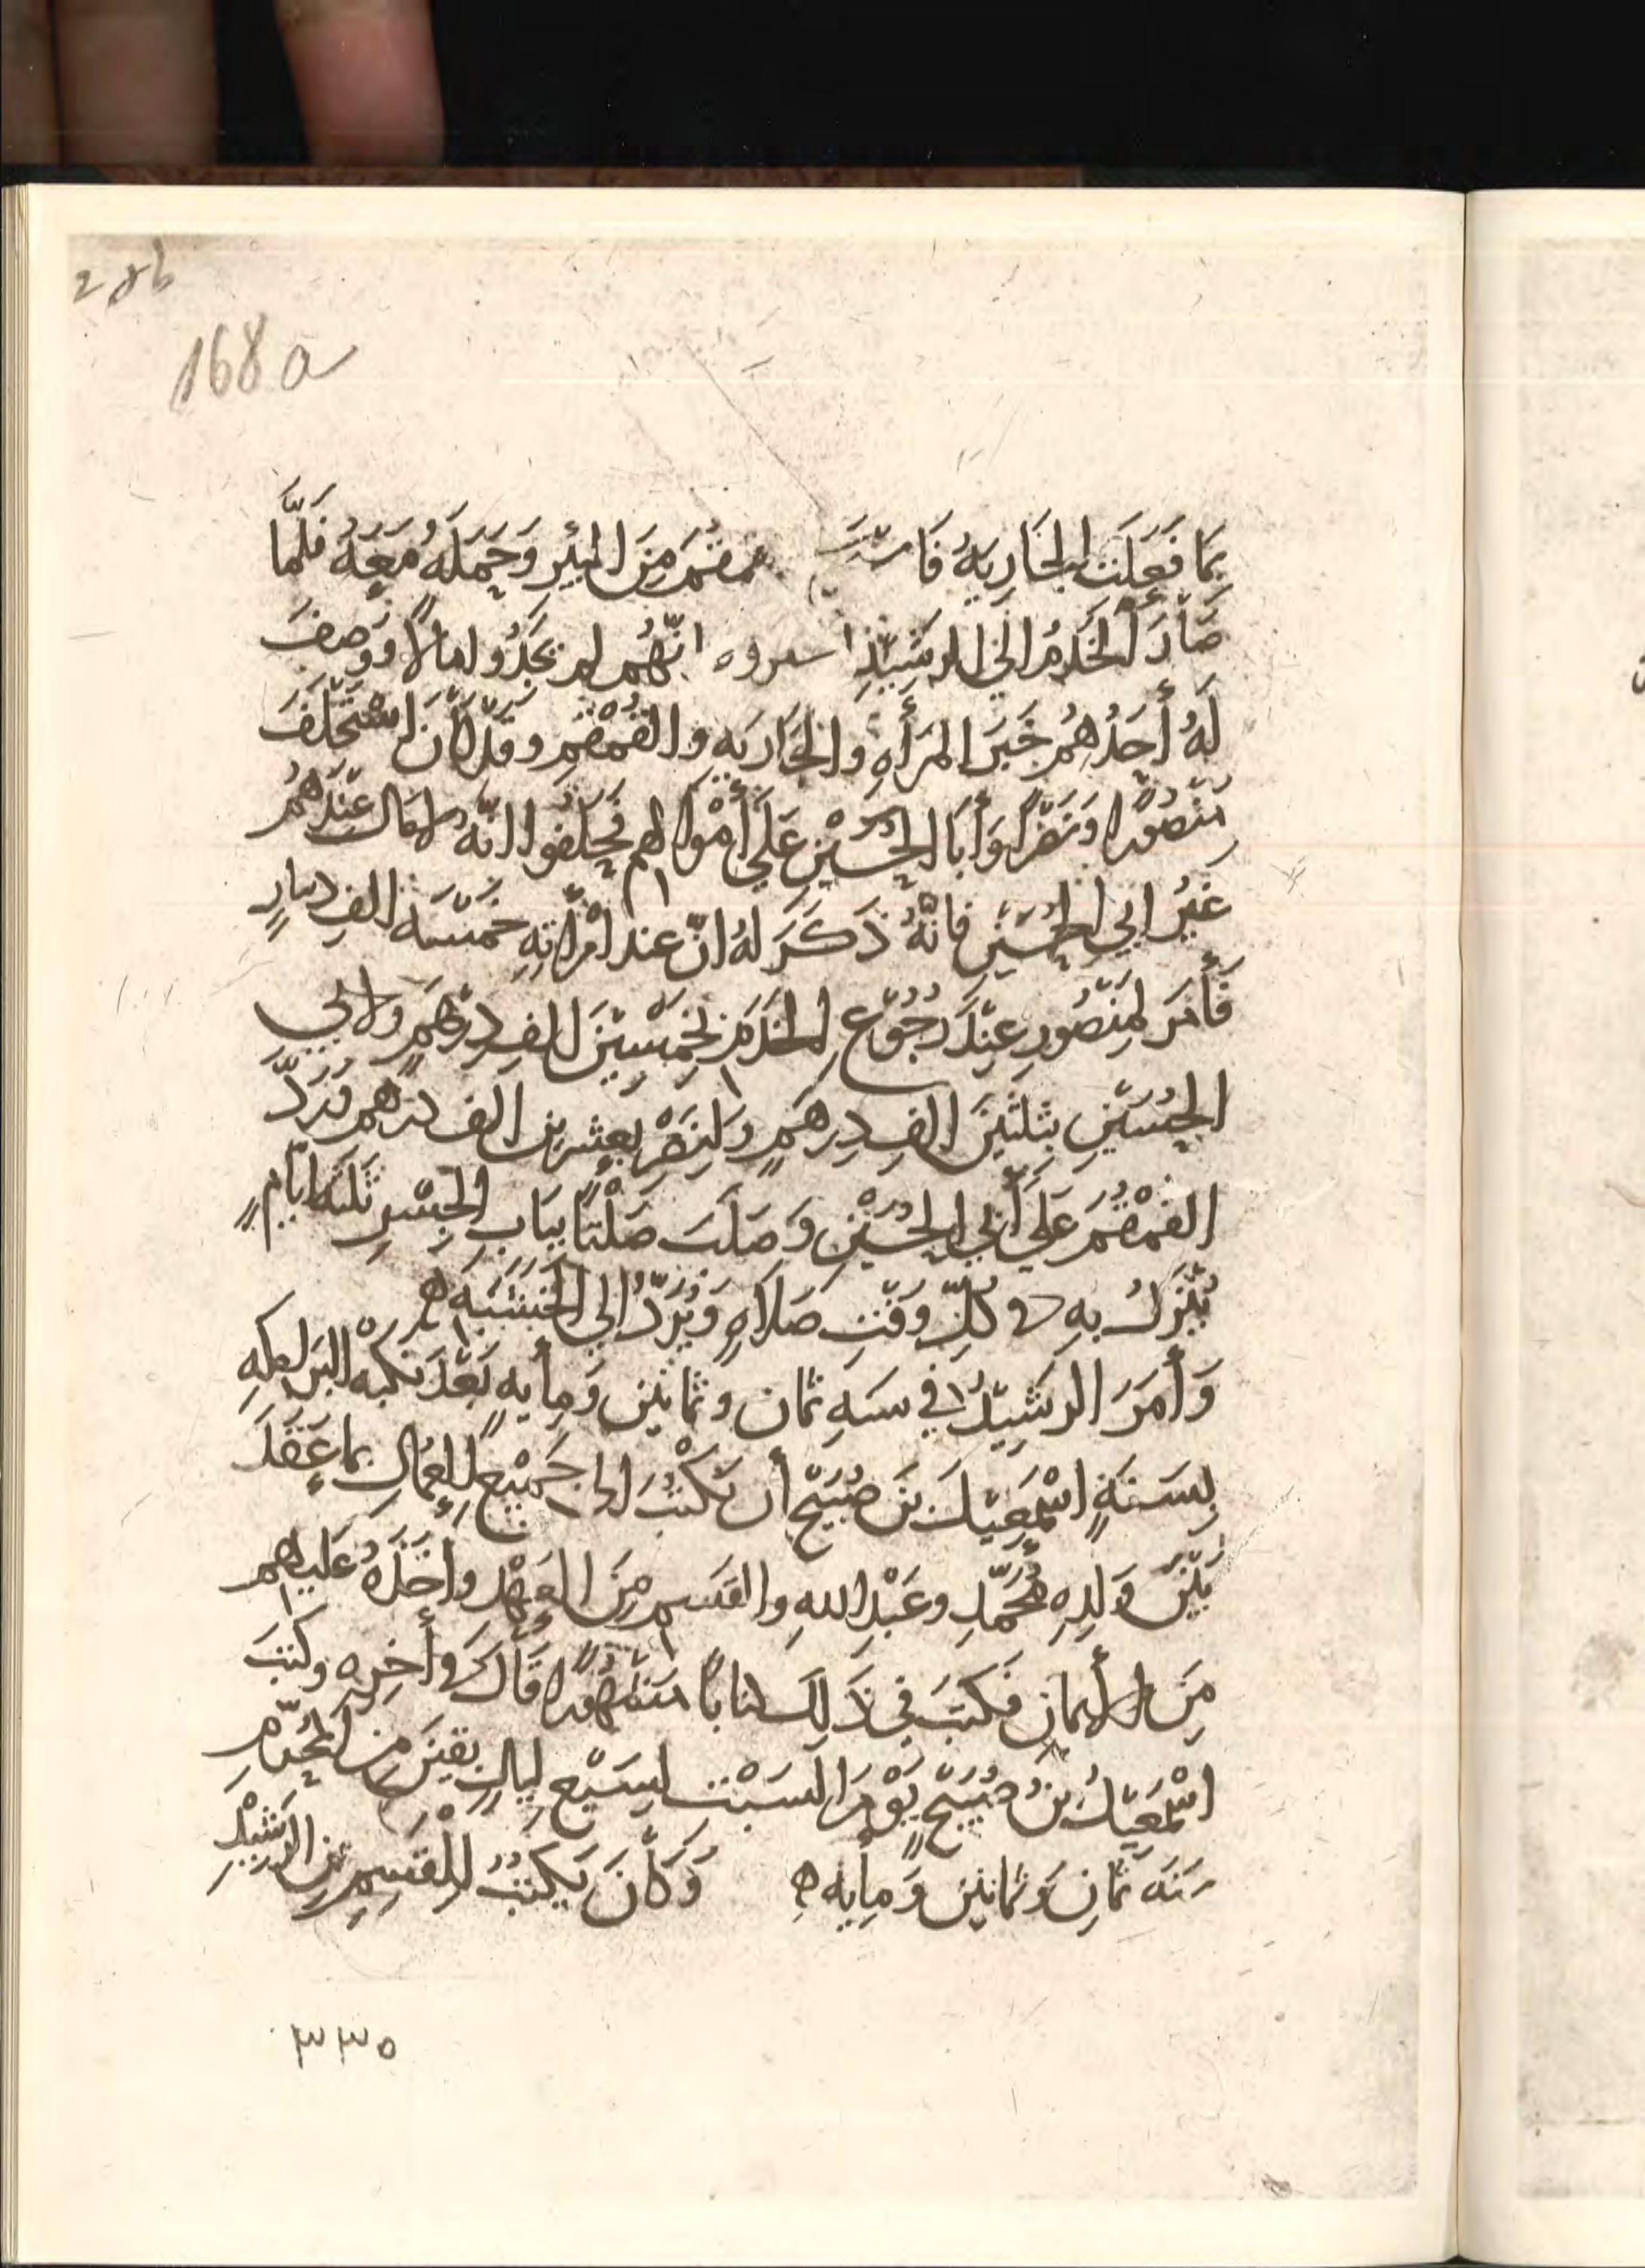 286
168a
بِمَا فَعَلَت الجَارِيَهُ فَا القُمقُمَ مِنَ البِئرِ وَحَمَلَهُ مَعَهُ فَلَمَّا
صَارَ الخَدَمُ الَى الرَشِيدِ انّهُم لم يَجَدُوا مالاً وَوَصَفَ
لَهُ أَحَدُهُم خَبَرَ المَرأَهِ والجَارَيَه والقُمْقُمِ وقَد كَانَ اسْتَحْلَفَ
مَنْصُورًا وَنَصْرًا وَأَبَا الحُسَيْنِ عَلَي أَمْوَالهم فَحَلَفُوا انّهُ لا مَالَ عِنْدَهُمُ
غَيْرُ ابي الحُسَيْنِ فانّهُ ذَكَرَ لهُ انّ عند امْرَاتِهِ خَمْسَهَ الفِ دينارٍ
فَأَمَرَ لِمَنْصُورٍ عِنْدَ رُجُوْعِ الخَدَمِ بخَمْسِيْنَ الفِ دِرْهَمٍ وَلابي
الحُسَيْنِ بثَلثِيْنَ الفِ دِرهَمٍ وَلنَصْرٍ بعِشرين الف درهم وَرَدَّ
القُمْقُمَ عَلَي أَبي الحُسَيْنِ وَصَلَبَ صَلْتًا ببَابِ الجِسْرِ ثَلثَهَ ايّامٍ
يُنْزَلُ بهِ في كُلِّ وَقْتِ صَلاهٍ وَيُرَدُّ الي الخَشَبَهِ ه
وَأَمَرَ الرشِيدُ في سنهِ ثمان وثمانين وَمِأيهٍ بَعْدَ نكبهْ البرامكهِ
بِسَنَةٍ اسْمَعِيْلَ بنَ صُبَيْحٍ أن يَكْتُبَ الى جَمِيْعِ العُمَالِ بمَا عَقَدَ
بَيْنَ وَلدِهِ مُحَمَّدِ وعَبْدِ اللهِ والقَسِم مِنَ العَهْدِ واخَذَهُ عَلَيهِم
مِنَ الأيمانِ فَكَتبَ في ذَلِكَ كتابًا مَشْهُورًا قَالَ في أَخِرِه وكَتبَ
اسْمَعِيْلُ بنُ صُبَيْحٍ يَوْمَ السَبْت لسَبْعِ لَيالٍ بَقِيْنَ مِن المُحَرَّمِ
سَنَه ثمانٍ وَثمانين وَمِأيهٍ ه وَكَانَ يَكتُبُ لِلْقَسِمِ بن الرَشِيْدِ
٣٣٥